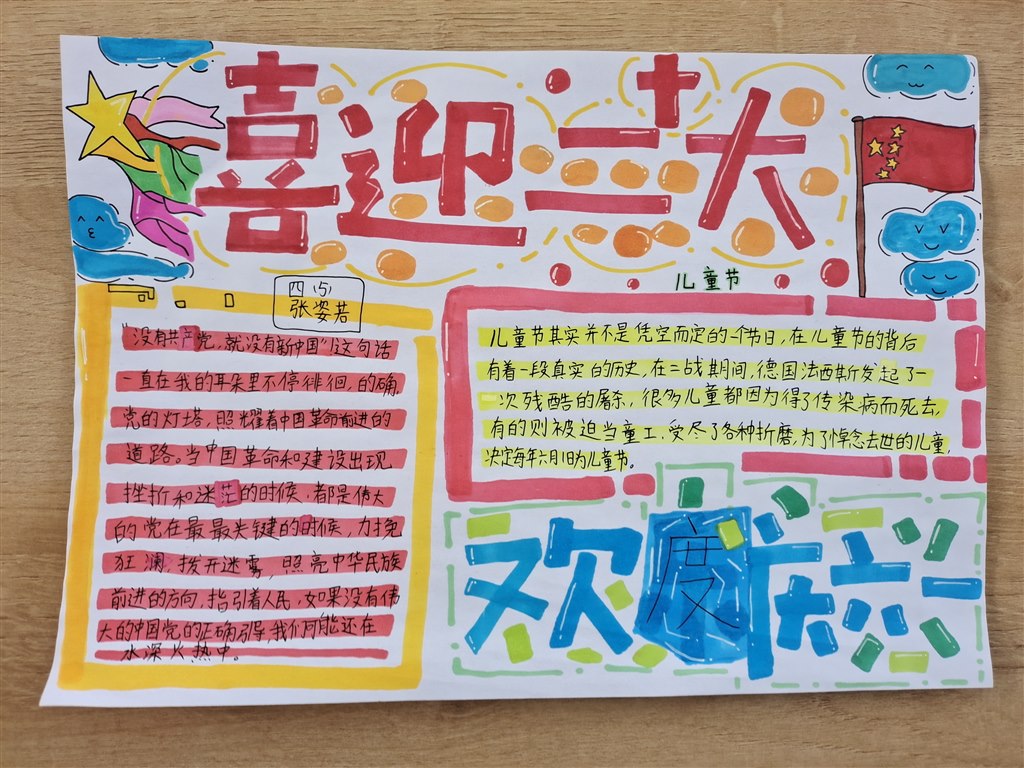 喜迎二十大
四(5)
张姿若
"没有共产党,就没有新中国"!这句话
一直在我的耳朵里不停徘徊,的确
党的灯塔,照耀着中国革命前进的
道路。当中国革命和建设出现
挫折和迷茫的时候,都是伟大
的党在最最关键的时候,力挽
狂澜,拨开迷雾,照亮中华民族
前进的方向,指引着人民,如果没有伟
大的中国党的正确引导,我们可能还在
水深火热中。
儿童节
儿童节其实并不是凭空而定的一个节日,在儿童节的背后
有着一段真实的历史,在二战期间,德国法西斯发起了一
一次残酷的屠杀,很多儿童都因为得了传染病而死去,
有的则被迫当童工,受尽了各种折磨,为了悼念去世的儿童,
决定每年六月1日为儿童节。
欢度庆六一